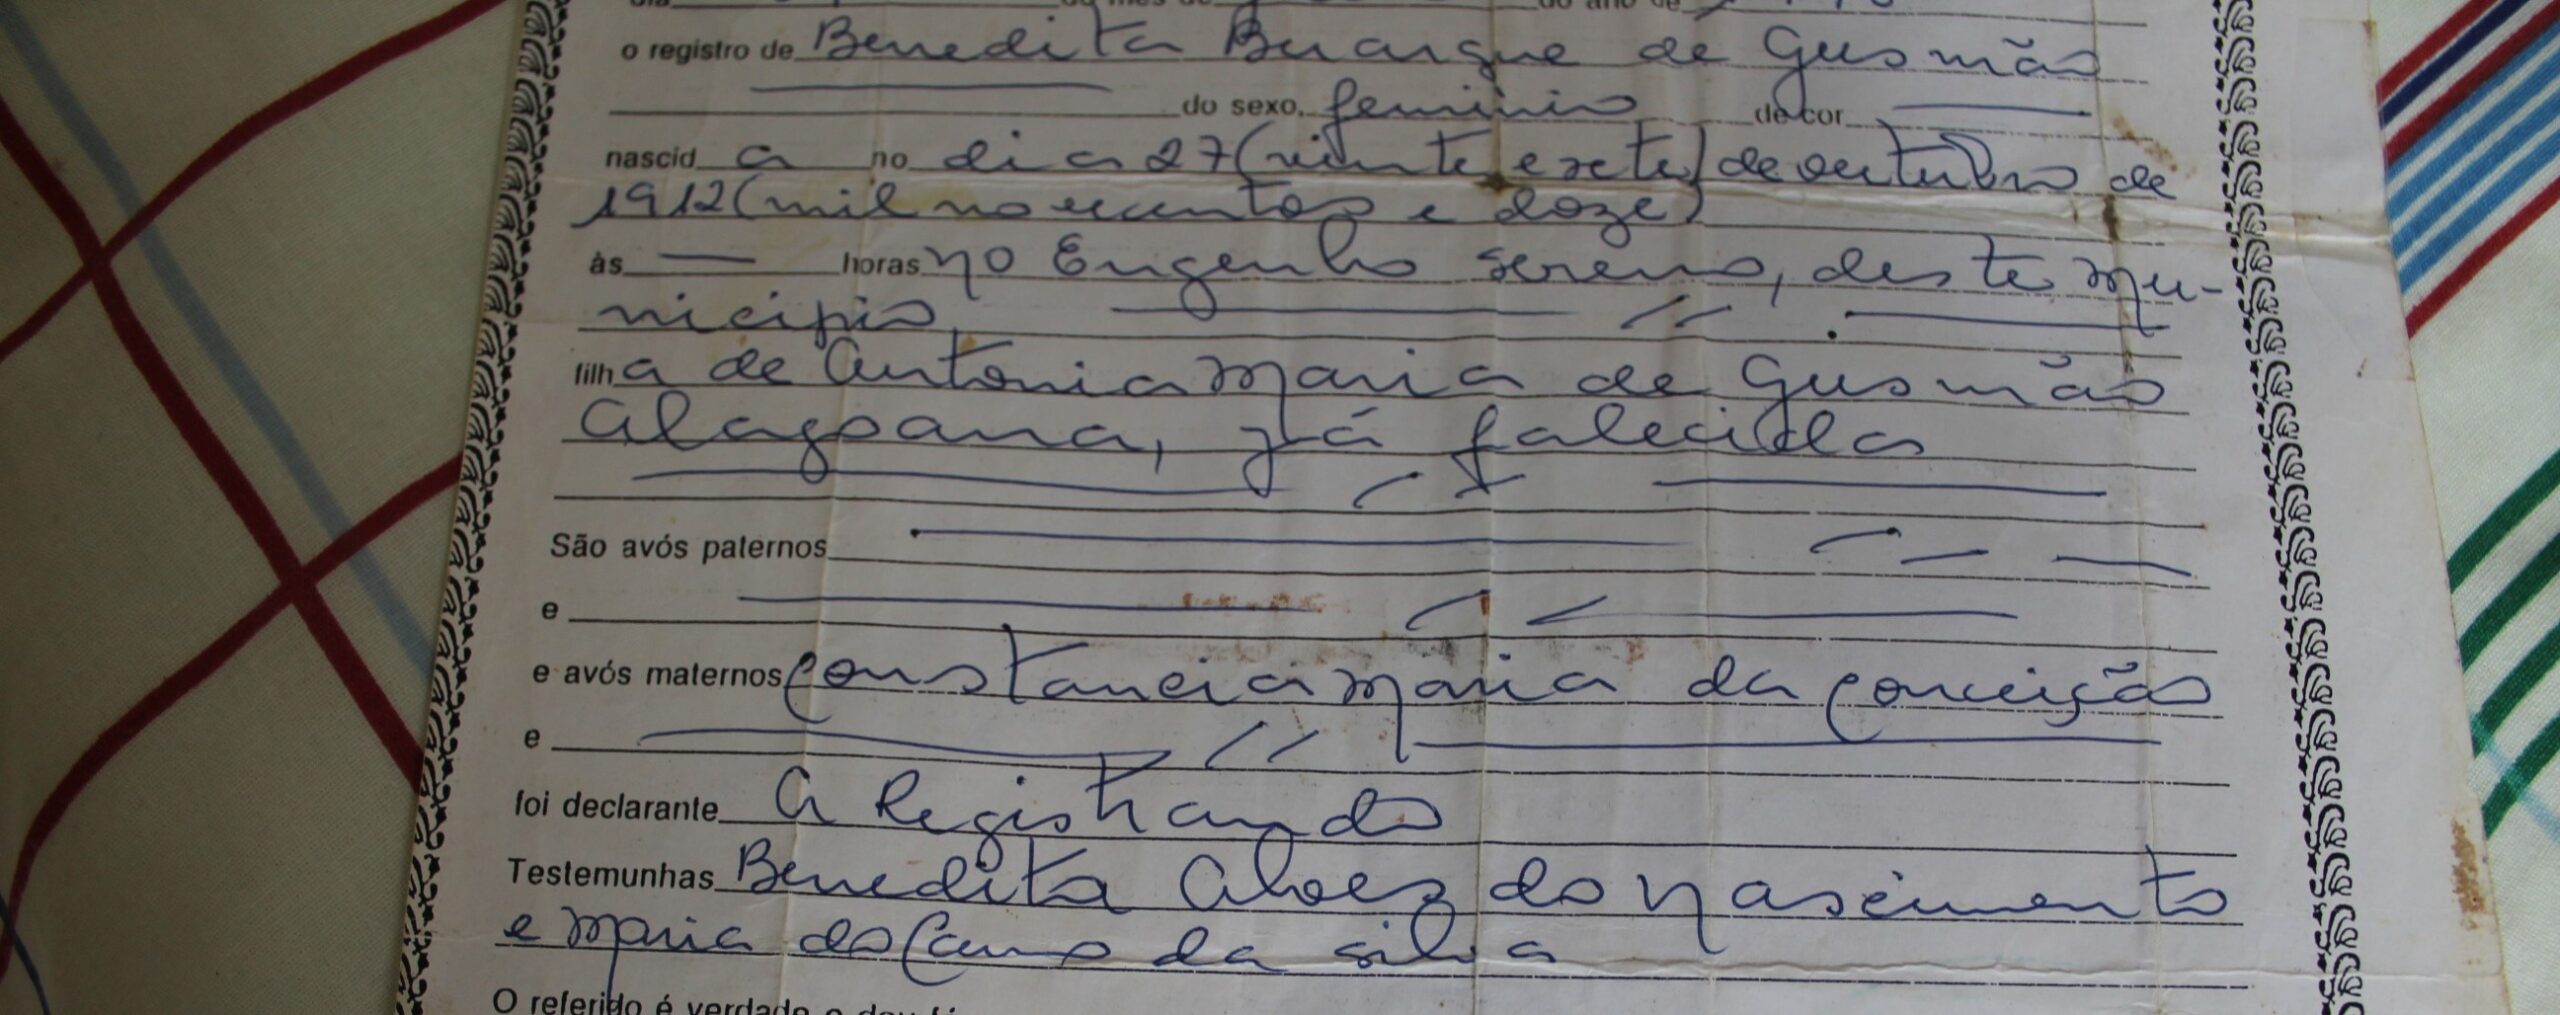 do ano de
o registro de Benedita Buarque de Gusmão
do sexo, feminino de cor
nascid a no dia 27 (vinte e sete) de outubro de
1912 (mil novecentos e doze)
às horas no Engenho Sereno, deste mu-
nicipio
filha de Antonia Maria de Gusmão
Alagoana, já falecida
São avós paternos
e
e avós maternos Constancia Maria da Conceição
e
foi declarante A Registrando
Testemunhas Benedita Alves do Nascimento
e Maria do Carmo da Silva
O referido é verdade e dou fé